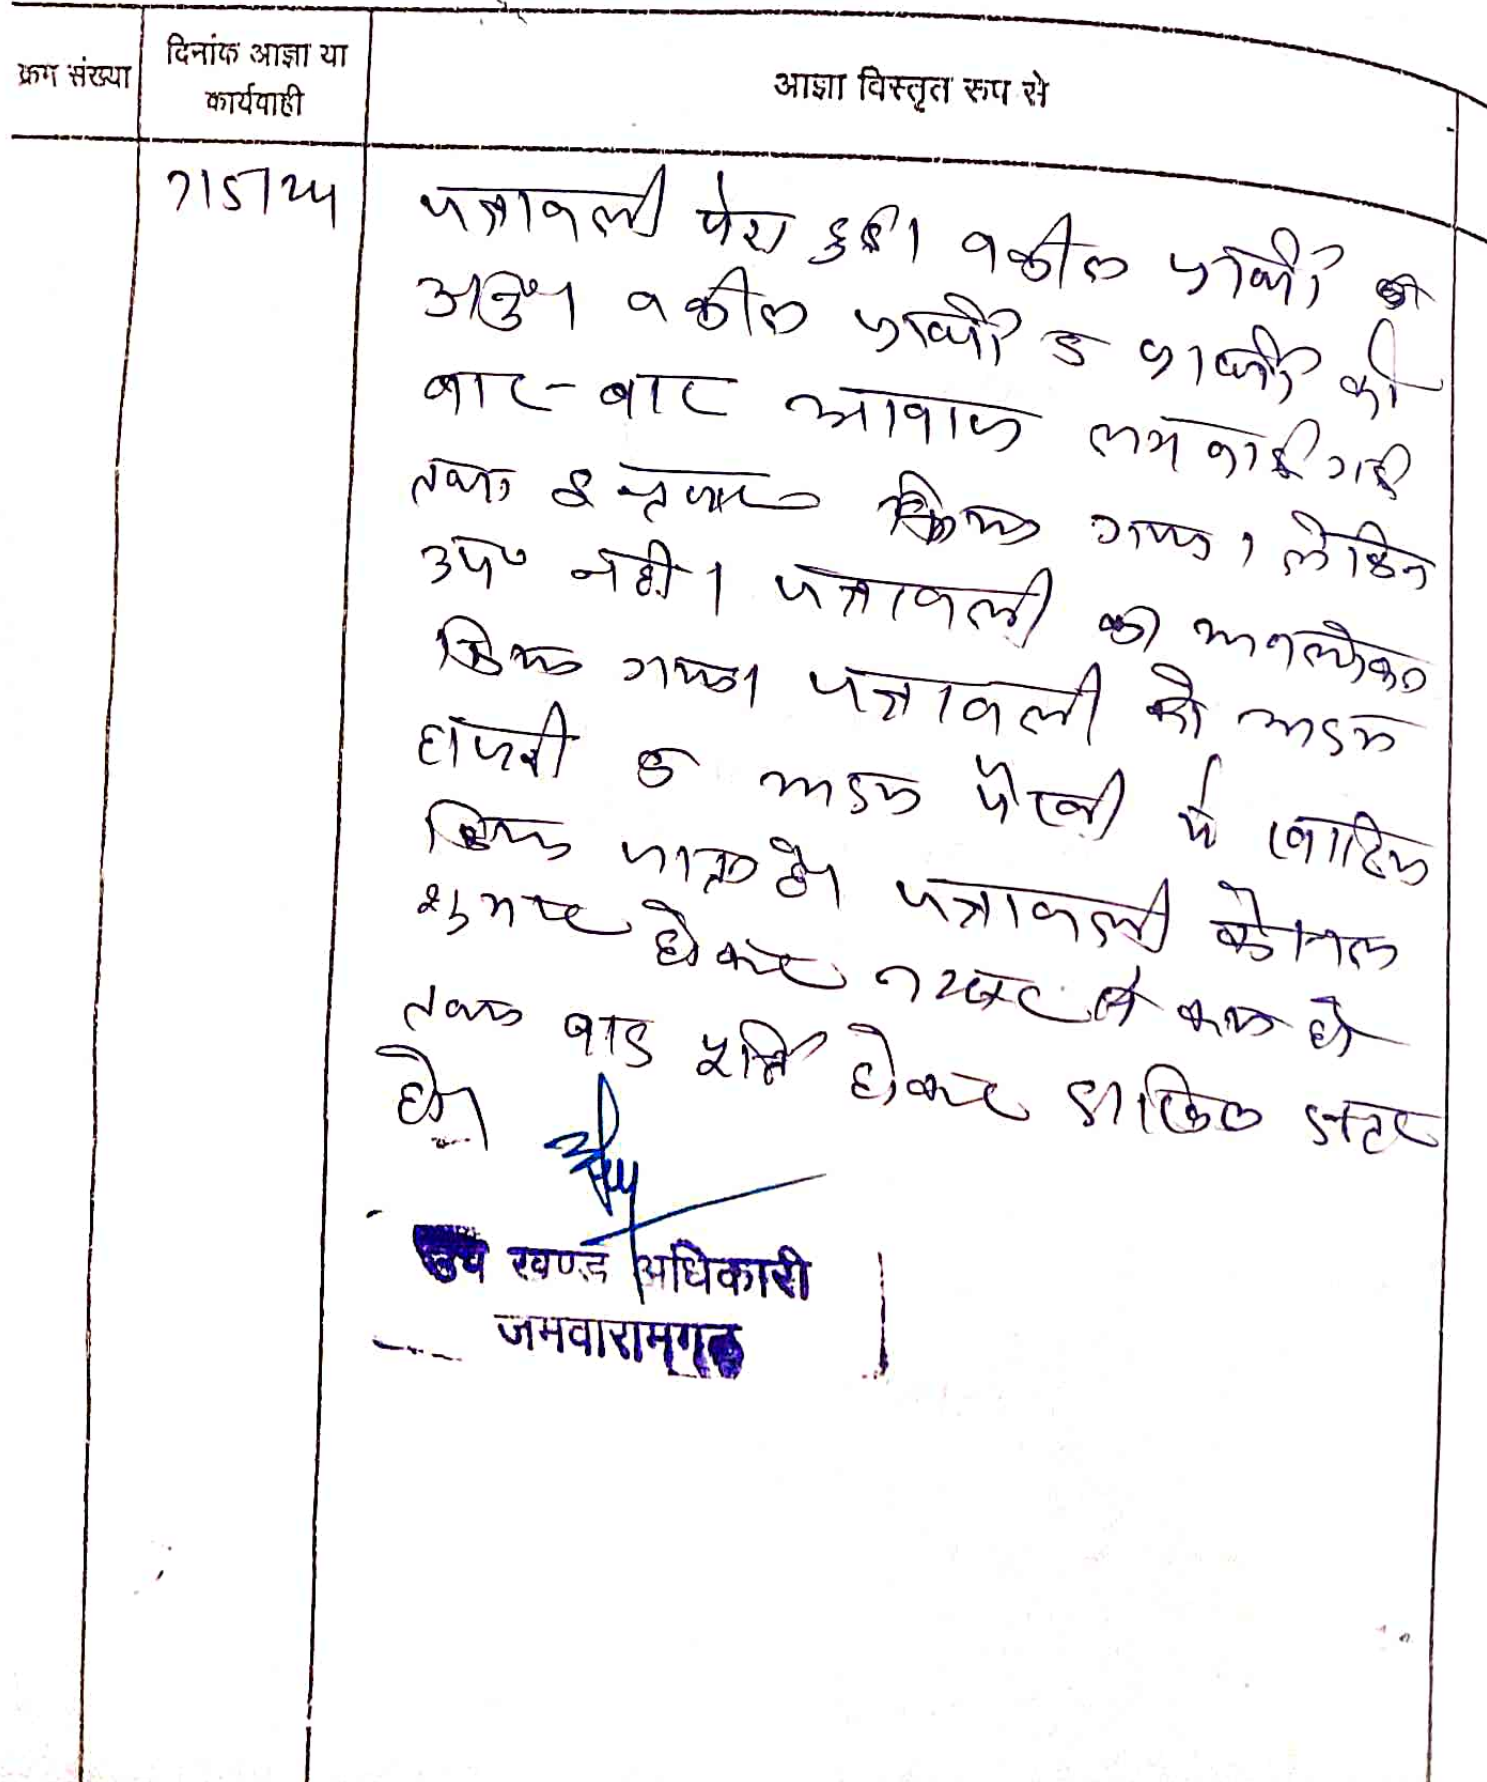 क्रम संख्या
दिनांक आज्ञा या
कार्यवाही
आज्ञा विस्तृत रूप से
7/5/24
पत्रावली पेश हुई। वकील प्रार्थी की
अनु॰। वकील प्रार्थी व प्रार्थी को
बार-बार आवाज लगवाई गई
तथा इन्तजार किया गया। लेकिन
उप॰ नहीं। पत्रावली का अवलोकन
किया गया। पत्रावली को अदम
हाजरी व अदम पैरवी में खारिज
किया जाता है। पत्रावली फैसल
शुमार होकर नम्बर से कम हो
तथा बाद पूर्ति होकर दाखिल दफ्तर
हो।
उप खण्ड अधिकारी
जमवारामगढ